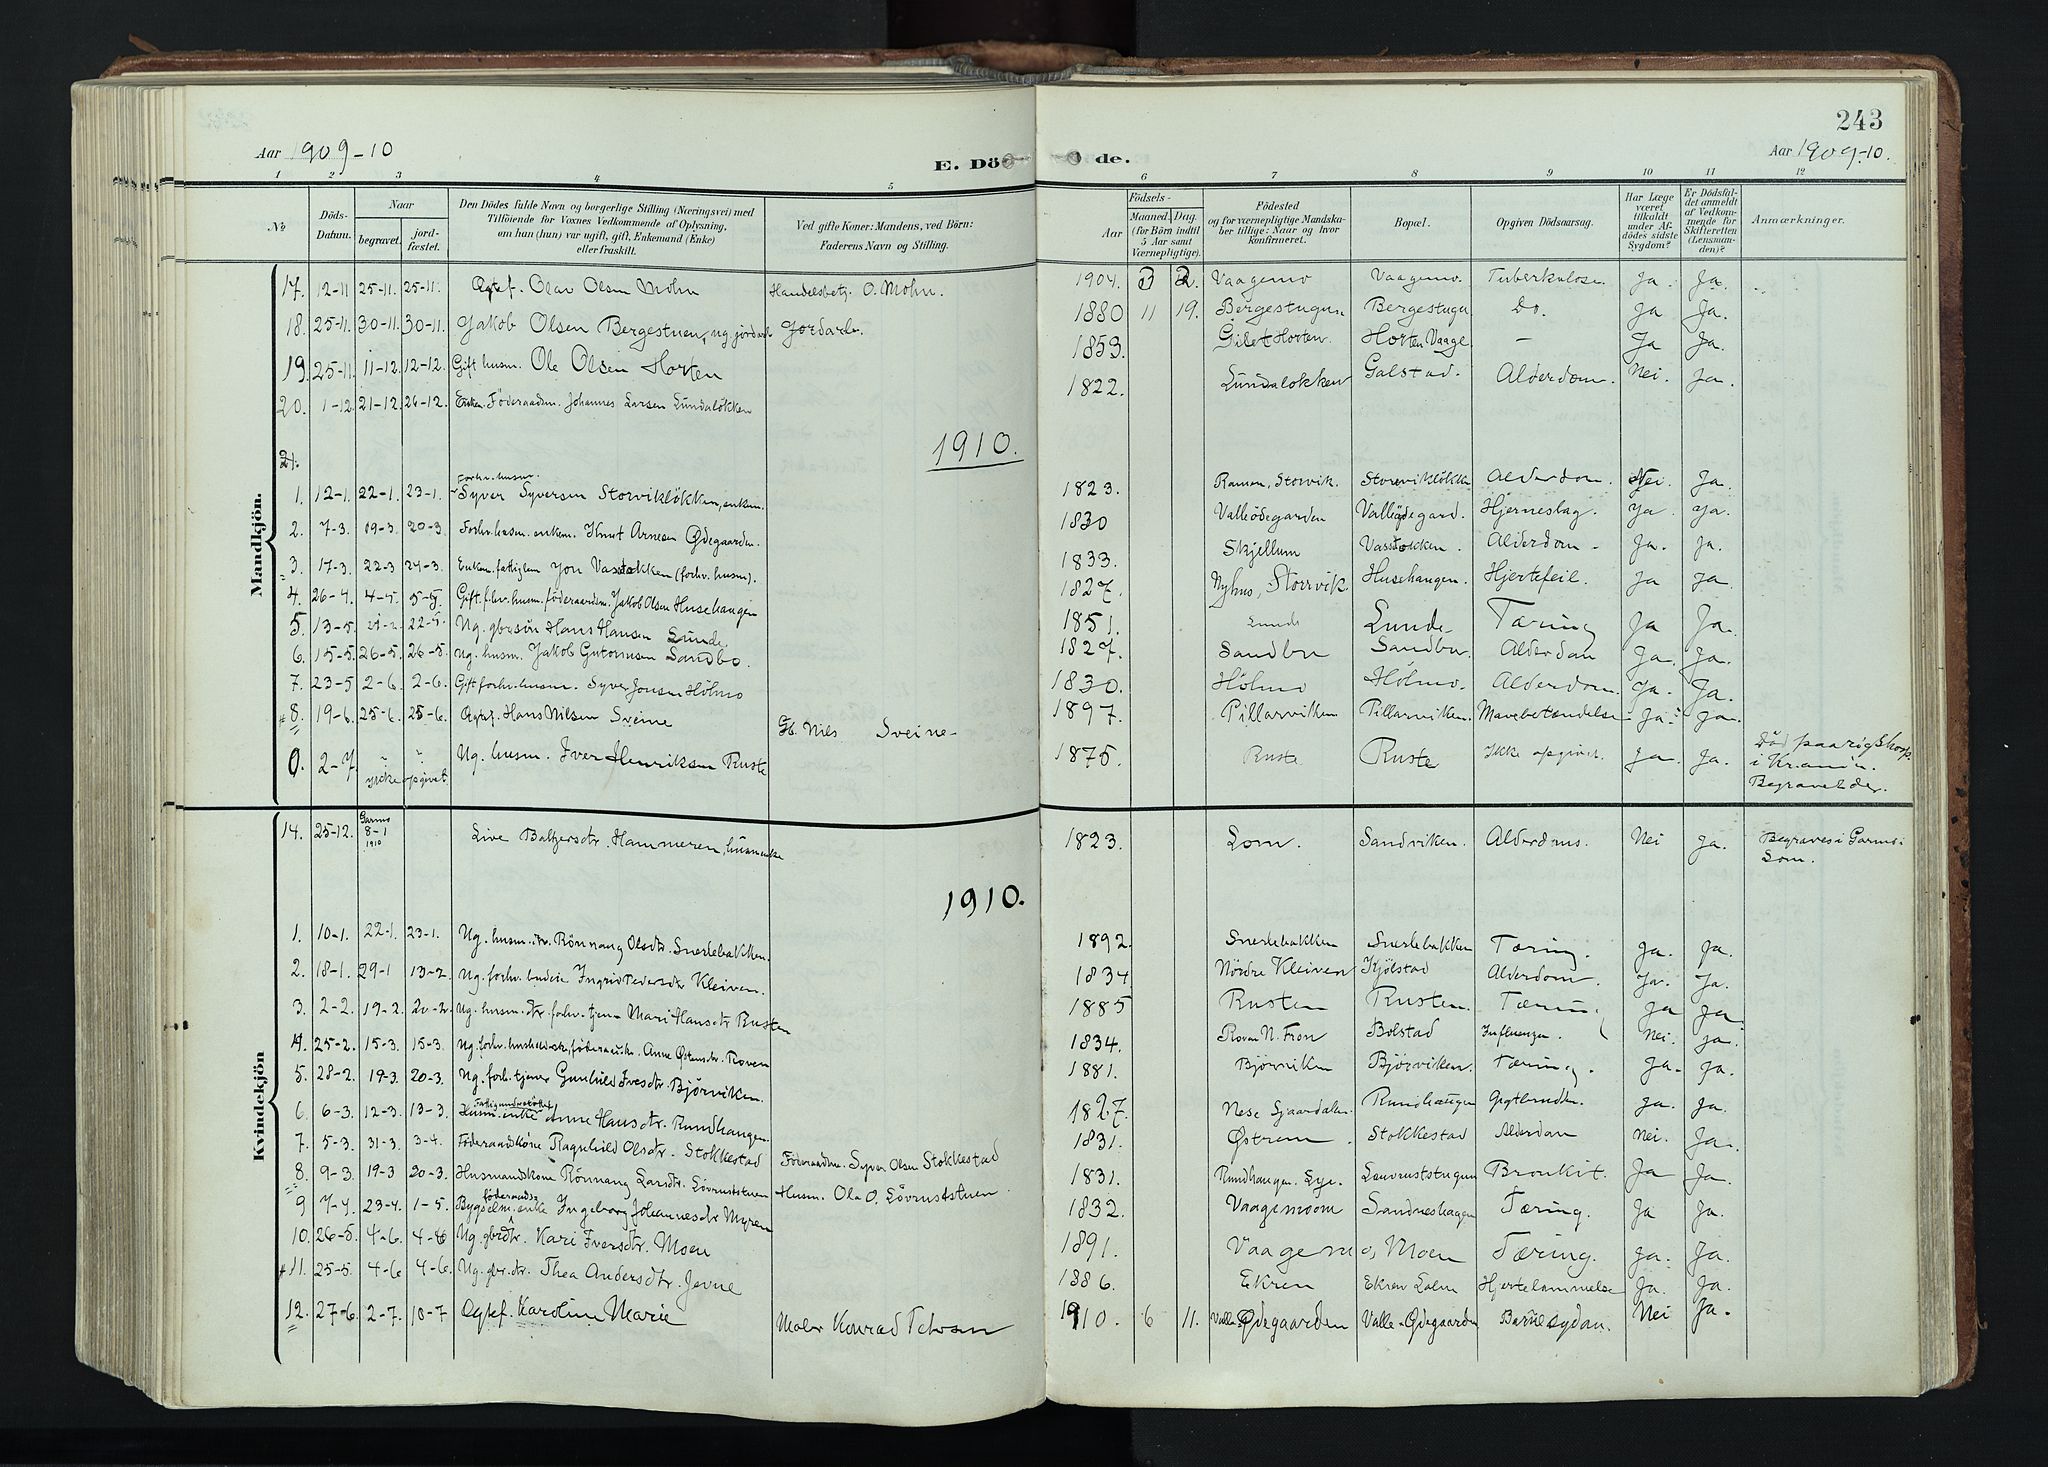 243
Aar 1909-10
E. Dö de.
Aar 1909-10.
1 2 3 4 5 6 7 8 9 10 11 12
No
Döds-Datum.
Naar
begravet.
jord-fæstet.
Den Dödes fulde Navn og borgerlige Stilling (Næringsvei) med
Tilföiende for Voxnes Vedkommende af Oplysning,
om han (hun) var ugift, gift, Enkemand (Enke)
eller fraskilt.
Ved gifte Koner: Mandens, ved Börn:
Faderens Navn og Stilling.
Födsels-
Aar
Maaned.
Dag.
(for Börn indtil
5 Aar samt
Værnepligtige).
Födested
og for værnepligtige Mandska-
ber tillige: Naar og hvor
konfirmeret.
Bopæl.
Opgiven Dödsaarsag.
Har Læge
været
tilkaldt
under Af-
dödes sidste
Sygdom?
Er Dödsfal-
det anmeldt
af Vedkom-
mende for
Skifteretten
(Lensman-
den)?
Anmærkninger.
Mandkjön.
17. 12-11 25-11. 25-11. Olav Olsen Mohn Handelsbetj. O. Mohn. 1904. Vaagemo Vaagemo. Tuberkulose. Ja. Ja.
18. 25-11. 30-11. 30-11. Jakob Olsen Bergestuen, ug. Jordarb. 1880 11 19. Bergestugu Do. Ja Ja.
19. 25-11. 11-12. 12-12. Gift husm. Ole Olsen Horten 1853. Horten. Horten Vaage - Ja Ja.
20. 1-12. 21-12. 26-12. Enkem. Föderaadm. Johannes Larsen Lundaløkken 1822. Lundaløkken Galstad. Alderdom. Nei. Ja.
1910.
21.
1. 12-1. 22-1. 23-1. Forhv. husm. Syver Syversen Storvikløkken, enkem. 1823. Ramen, Storvik. Storvikløkk. Alderdom. Nei. Ja.
2. 7-3. 19-3. 20-3. Forhv. husm. enkem. Knut Arnesen Ødegaarden. 1830 Valleødegarden Valleødegard. Hjerneslag. Ja. Ja.
3. 17-3. 22-3 24-3. Enkem. fattiglem Jon Vasstokken (forhv. husm). 1833. Skjellum Vasstokken. Alderdom. Ja. Ja.
4. 26-4. 4-5. 5-5. Gift. fhv. husm. föderaadm. Jakob Olsen Husehangen 1827. Nyhus, Storrvik. Husehangen. Hjertefeil. Ja Ja.
5. 13-5. 22-5. Ug. gbrsøn Hans Hansen Lunde 1851. Lunde Lunde. Tæring Ja Ja.
6. 15-5. 26-5. 26-5. Ug. husm. Jakob Gutormsen Sandbo. 1827. Sandbu Sandbu. Alderdom Ja. Ja.
7. 23-5 2-6. 2-6. Gift forhv. husm. Syver Jonsen Hölmo 1830. Hölmo Hölmo. Alderdom. Ja. Ja.
8. 19-6. 25-6. 25-6. Hans Nilsen Sveine Gb. Nils Sveine 1897. Pillarviken Pillarviken. Mavebetændelse Ja. Ja.
9. 2-7. ikke opgivet Ug. husm. Iver Henriksen Ruste 1875. Ruste Ruste Ikke opgivet. Ja. Ja. Död paa rigshosp. i Kr.ania. Begravet der.
Kvindekjön
14. 25-12. Garmo 8-1 1910 Live Baltzersdtr. Hammeren, husmenke 1823. Lom. Sandviken. Alderdoms. Nei Ja. Begraves i Garmo i Lom.
1910.
1. 10-1. 22-1. 23-1. Ug. husm. dtr. Rönnaug Olsdtr. Snerlebakken. 1892. Snerlebakken Snerlebakken Tæring. Ja. Ja.
2. 18-1. 29-1 13-2. Ug. forhv. budeie Ingrid Pedersdtr Kleiven. 1834 Nördre Kleiven Kjölstad Alderdom. Ja. Ja.
3. 2-2. 19-2. 20-2. Ug. husm. dtr. forhv. tjen. Mari Hansdtr Rusten 1885 Rusten Rusten. Tæring Ja Ja.
4. 25-2. 15-3. 15-3. Anne Østensdtr. Roven 1834. Roven N. Fron Bolstad Influenza. Nei. Ja.
5. 28-2. 19-3. 20-3. Ug. forh. tjener Gunhild Iversdtr. Bjørviken. 1881. Bjørviken Bjørviken. Tæring. Ja. Ja.
6. 6-3. 12-3. 13-3. Fattigunderstöttet Husm. enke Anne Hansdtr. Rundhaugen. 1827. Rundhaugen Ja. Ja.
7. 5-3. 31-3. 3-4. Föderaadskone Ragnhild Olsdtr. Stokkestad Föderaadm. Syver Olsen Stokkestad 1831. Østrem. Stokkestad Alderdom Nei. Ja.
8. 9-3. 19-3 20-3. Husmandskone Rönnaug Larsdtr. Lövruststuen Husm. Ola O. Lövruststuen. 1831. Rundhaugen Lövruststugun Bronkit. Ja Ja.
9 7-4. 23-4. 1-5. Bygselm. föderaads enke Ingeborg Johannesdtr Myren 1832. Vaagemoom Sandneshagen Tæring. Ja Ja.
10. 26-5. 4-6. 4-6 Ug. gbrdtr. Kari Iversdtr. Moen 1891. Vaagemo, Moen Tæring. Ja. Ja.
11. 25-5. 4-6 4-6. Ug. gbr. dtr. Thea Andersdtr. Jevne 1886. Ekren Ekren Hjertelammelse Ja. Ja.
12. 27-6. 2-7. 10-7 Karoline Marie Maler Konrad 1910. 6 11. Valle Ødegaarden Valle-Ødegaarden Nei Ja.